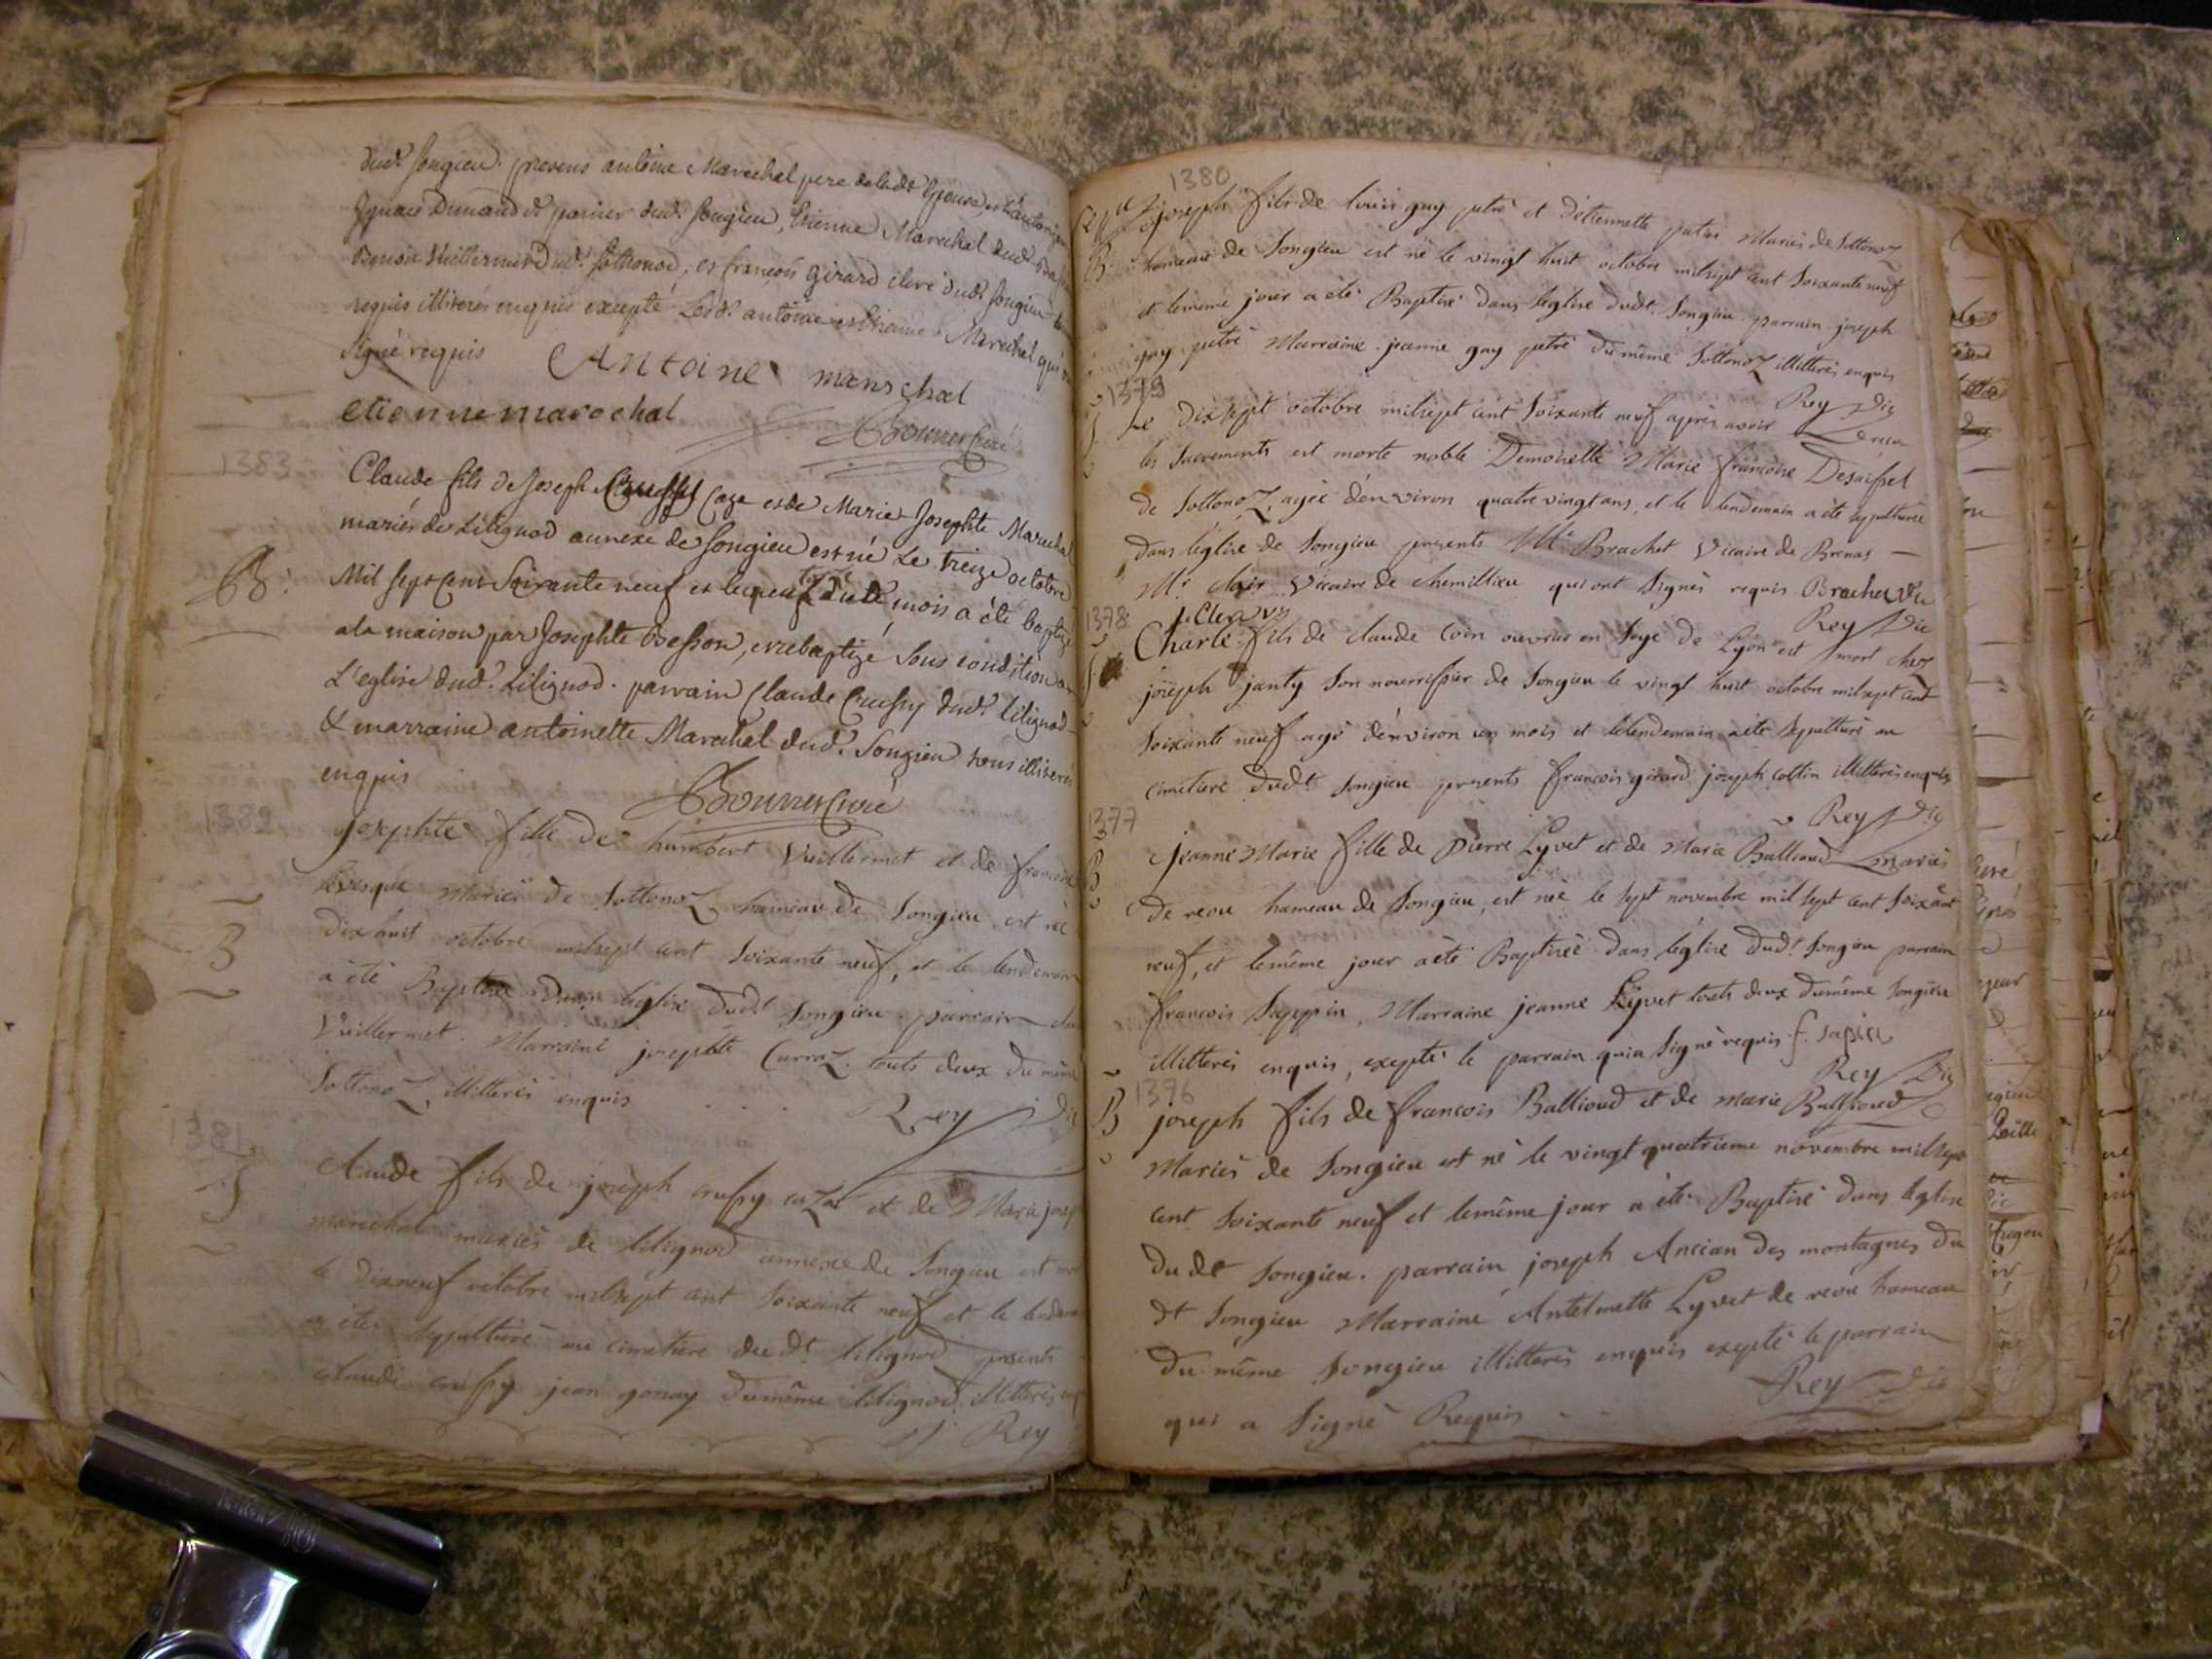 dud.t Songieu presens antoine Marechal pere de lad.te Epouse,
Ignace Dumand dud.t Songieu, Etienne Marechal dud.t
Benoit Vuillermet dud.t Sothonod, et francois girard clerc dud.t Songieu
requis illiterés enquis excepté Led.t antoine et Etienne Marechal qui
signé requis Antoine marechal
etienne marechal
Bonnet Curé
1383
Claude fils de Joseph Crussy Caza et de Marie Josephte Marechal
mariés de Lilignod annexe de Songieu est né Le treize octobre
B:
Mil sept Cent Soixante neuf et le dud.t mois a été baptizé
a la maison par Josephte Besson, et rebaptizé Sous condition
L'eglise dud.t Lilignod. parrain Claude Crussy dud.t lilignod
& marraine antoinette Marechal dud.t Songieu tous illiterés
enquis
Bonnet Curé
1382
josephte fille de humbert Vuillermet et de francoise
levesque Mariés de SottonoZ hameau de Songieu est née
B
dixhuit octobre milsept cent Soixante neuf, et le lendemain
a été Baptisée dans leglise dud.t Songieu parrain
Vuillermet. Marraine josephte CurraZ touts deux du même
SottonoZ, illitterés enquis Rey Vic
1381
S
Claude fils de joseph crussy caZa et de Marie
marechal mariés de lilignod annexe de Songieu est
le dixneuf octobre milsept cent Soixante neuf et le
a été sepulturé au cimetiere dud.t lilignod presents
claude crussy jean gonay du même lilignod illitterés
Rey
1380
joseph fils de louis guy petré et d'etiennette Mariés de SottonoZ
B
hameau de Songieu est né le vingt huit octobre milsept cent Soixante neuf
et lemême jour a été Baptisé dans leglise dud.t Songieu parrain joseph
guy petré Marraine jeanne guy petré du même SottonoZ illitterés enquis
Rey Vic
1379
S
Le dixsept octobre milsept cent Soixante neuf après avoir reçu
les Sacrements est morte noble Demoiselle Marie francoise Desaissel
de SottonoZ, agée d'environ quatre vingt ans, et le lendemain a été sepulturée
dans leglise de Songieu presents M.r Brachet Vicaire de Brenas
M.r Vicaire de chemillieu qui ont Signés requis Brachet vic
Rey Vic
1378
S
Charle fils de claude coin ouvrier en Soye de Lyon est mort chez
joseph janty Son nourrissier de Songieu le vingt huit octobre milsept cent
Soixante neuf agé d'environ un mois et lelendemain a été Sepulturé au
cimetiere dud.t Songieu presents francois girard joseph cottin illitterés enquis
Rey Vic
1377
B
jeanne Marie fille de Pierre Lyvet et de Marie Ballioud mariés
de hameau de Songieu, est née le sept novembre mil sept cent Soixante
neuf, et lemême jour a été Baptisée dans leglise dud.t Songieu parrain
francois Sappin, Marraine jeanne Lyvet touts deux dumême Songieu
illitterés enquis, exepté le parrain qui a Signé requis f. sapin
Rey Vic
1376
B
joseph fils de francois Ballioud et de marie Ballioud
Mariés de Songieu est né le vingt quatrieme novembre milsept
cent Soixante neuf et lemême jour a été Baptisé dans leglise
dud.t Songieu. parrain joseph Ancian des montagnes du
dt Songieu Marraine Antelmette Lyvet de hameau
du même Songieu illitterés enquis exepté le parrain
qui a Signé Requis
Rey Vic